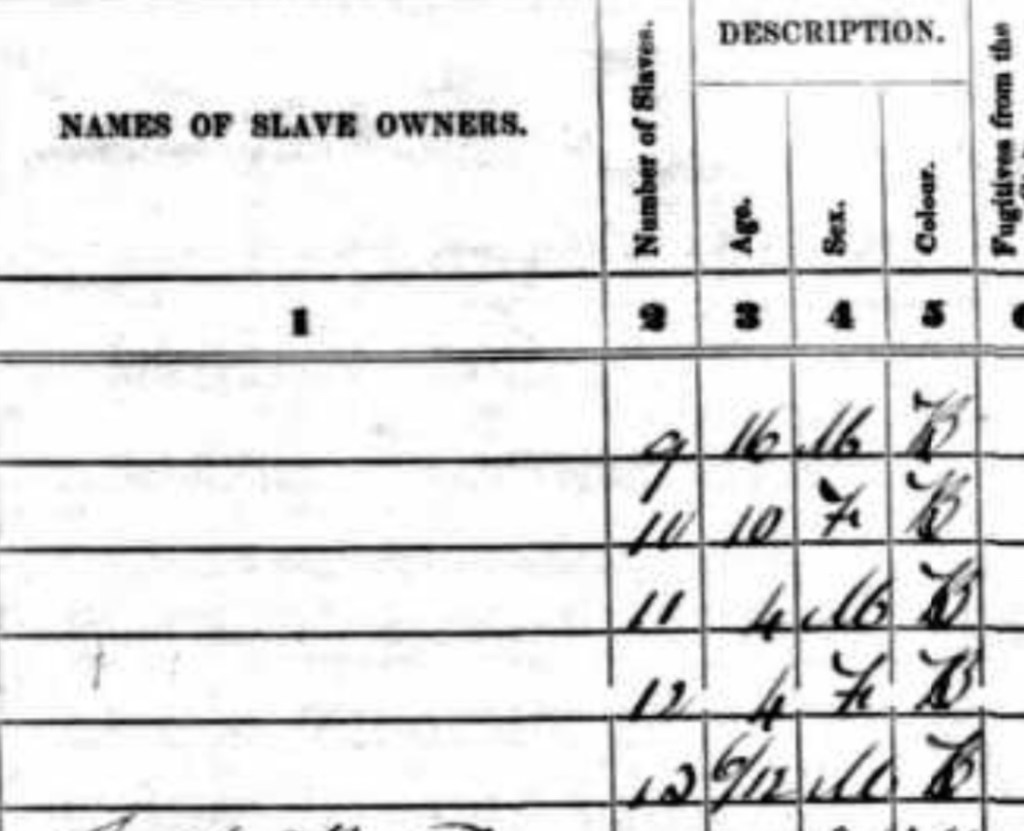 NAMES OF SLAVE OWNERS. Number of Slaves. DESCRIPTION. Fugitives from the
Age. Sex. Colour.
1 2 3 4 5
9 16 M B
10 10 F B
11 4 M B
12 4 F B
13 6/12 M B